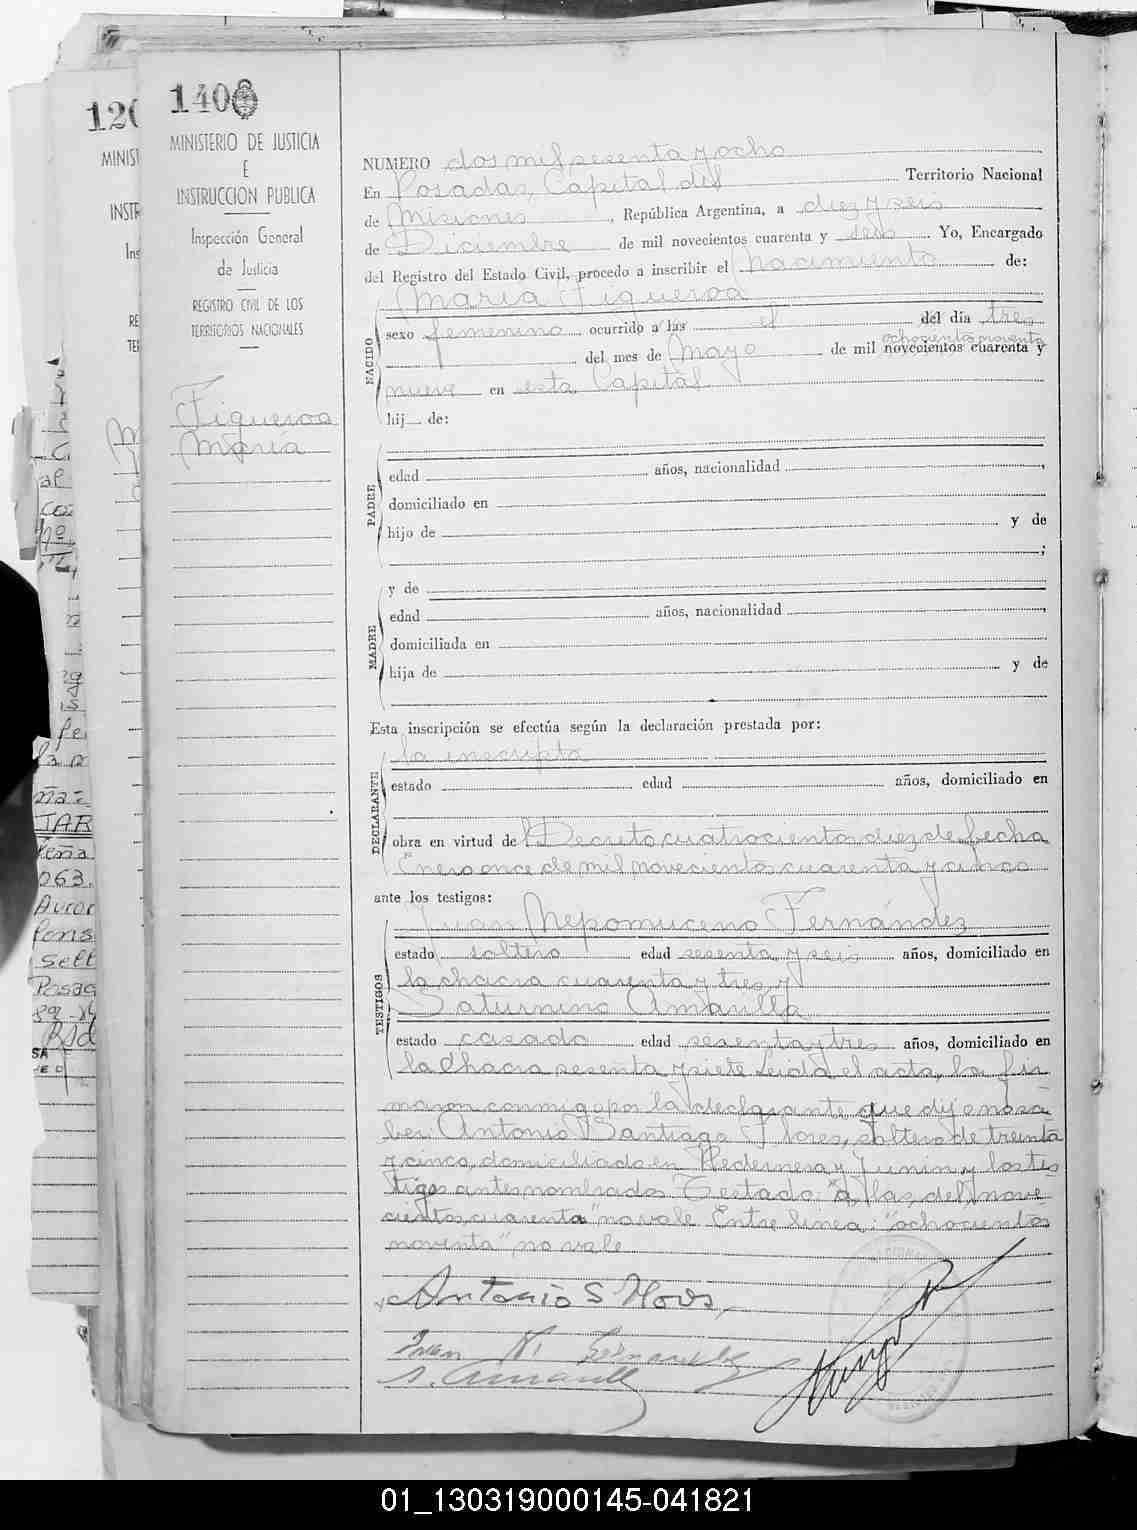 140
120
MINISTERIO DE JUSTICIA
E
INSTRUCCION PUBLICA
Inspección General
de Justicia
REGISTRO CIVIL DE LOS
TERRITORIOS NACIONALES
MINIST
INSTR
Ins
RE
TER
Figueroa
María
NUMERO dos mil sesenta y ocho
En Posadas, Capital del Territorio Nacional
de Misiones, República Argentina, a diez y seis
de Diciembre de mil novecientos cuarenta y seis Yo, Encargado
del Registro del Estado Civil, procedo a inscribir el nacimiento de:
María Figueroa
NACIDO
sexo femenino ocurrido a las el del día tres
ochocientos noventa
del mes de Mayo de mil novecientos cuarenta y
nueve en esta Capital
hij de:
PADRE
edad años, nacionalidad
domiciliado en
hijo de y de
y de
MADRE
edad años, nacionalidad
domiciliada en
hija de y de
Esta inscripción se efectúa según la declaración prestada por:
DECLARANTE
la inscripta
estado edad años, domiciliado en
obra en virtud del Decreto cuatrocientos diez de fecha
Enero once de mil novecientos cuarenta y cinco
ante los testigos:
TESTIGOS
Juan Nepomuceno Fernández
estado soltero edad sesenta y seis años, domiciliado en
la chacra cuarenta y tres, y
Saturnino Amarilla
estado casado edad sesenta y tres años, domiciliado en
la Chacra sesenta y siete Leida el acta, la fir
maron conmigo por la declarante que dijo no sa
ber: Antonio Santiago Flores, soltero de treinta
y cinco, domiciliado en Pedernera y Junin y los tes
tigos antes nombrados Testado: "a, las, del, nove
cientos, cuarenta" no vale Entre linea: "ochocientos
noventa", no vale
Antonio S Flores
Juan N. Fernandez
S. Amarilla
01_130319000145-041821